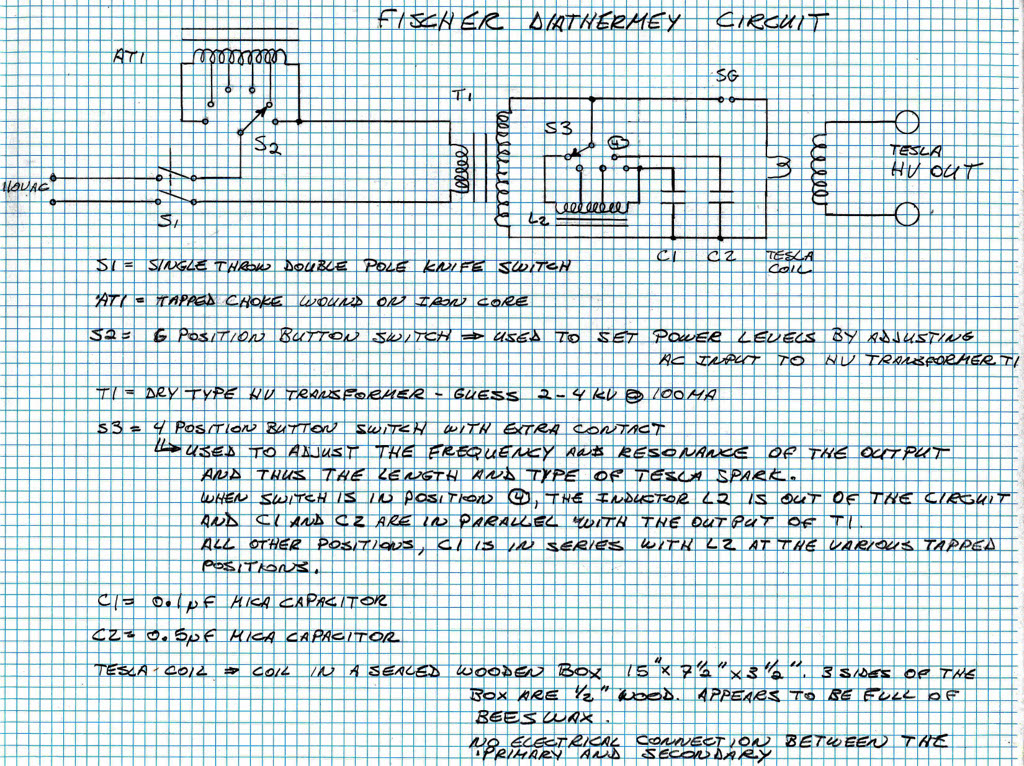 FISCHER DIATHERMEY CIRCUIT
AT1
SG
T1
S3
4
S2
TESLA
HV OUT
110VAC
L2
S1
C1 C2 TESLA
COIL
S1 = SINGLE THROW DOUBLE POLE KNIFE SWITCH
AT1 = TAPPED CHOKE WOUND ON IRON CORE
S2 = 6 POSITION BUTTON SWITCH ⇒ USED TO SET POWER LEVELS BY ADJUSTING
AC INPUT TO HV TRANSFORMER T1
T1 = DRY TYPE HV TRANSFORMER - GUESS 2-4 KV @ 100MA
S3 = 4 POSITION BUTTON SWITCH WITH EXTRA CONTACT
↳ USED TO ADJUST THE FREQUENCY AND RESONANCE OF THE OUTPUT
AND THUS THE LENGTH AND TYPE OF TESLA SPARK.
WHEN SWITCH IS IN POSITION ④, THE INDUCTOR L2 IS OUT OF THE CIRCUIT
AND C1 AND C2 ARE IN PARALLEL WITH THE OUTPUT OF T1.
ALL OTHER POSITIONS, C1 IS IN SERIES WITH L2 AT THE VARIOUS TAPPED
POSITIONS.
C1 = 0.1µF MICA CAPACITOR
C2 = 0.5µF MICA CAPACITOR
TESLA-COIL ⇒ COIL IN A SEALED WOODEN BOX 15" x 7½" x 3½". 3 SIDES OF THE
BOX ARE ½" WOOD. APPEARS TO BE FULL OF
BEESWAX.
NO ELECTRICAL CONNECTION BETWEEN THE
PRIMARY AND SECONDARY